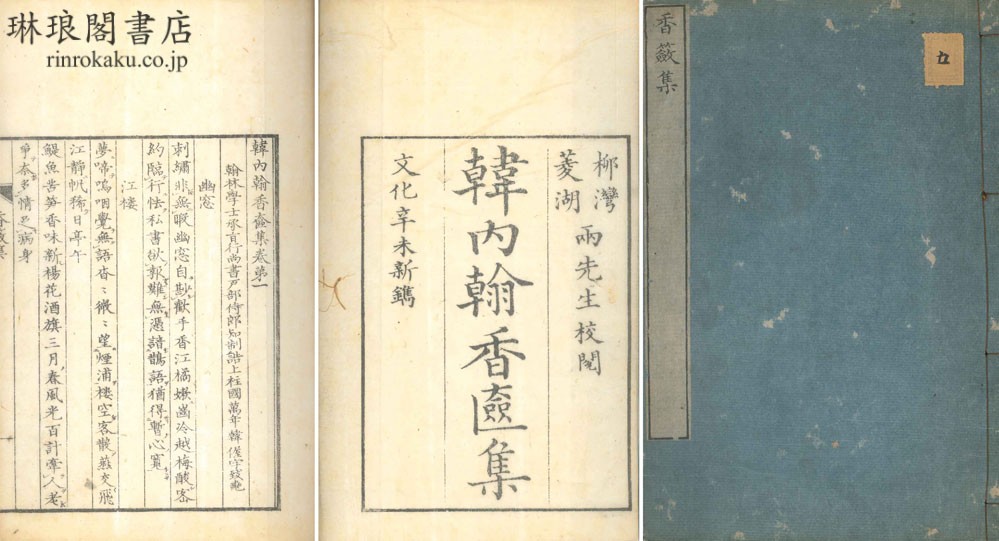 琳琅閣書店
rinrokaku.co.jp
香籢集
柳灣
菱湖
兩先生校閱
韓內翰香匳集
文化辛未新鐫
韓內翰香奩集卷第一
翰林學士承旨行尚書戶部侍郎知制誥上柱國萬年韓偓字致堯
幽窓
刺繡非無暇幽窓自尠歡手香江橘嫩齒冷越梅酸密
約臨行怯私書欲報難無憑諳鵲語猶得暫心寬
江樓
夢啼嗚咽覺無語杳〻微〻望煙浦樓空客散燕交飛
江靜帆稀日亭午
鯷魚苦筍香味新楊花酒旗三月春風光百計牽人老
爭奈多情足病身